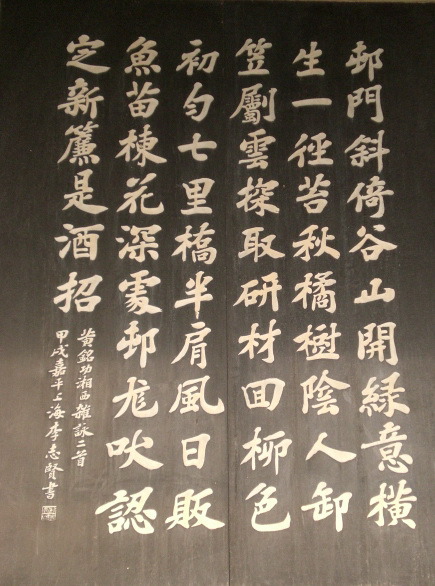 邨門斜倚谷山開緑意橫
生一徑苔秋橘樹陰人卸
笠劚雲探取研材囬柳色
初勻七里橋半肩風日販
魚苗楝花深處邨尨吠認
定新簾是酒招
黄銘功湘西雜詠二首
甲戌嘉平上海李志賢書